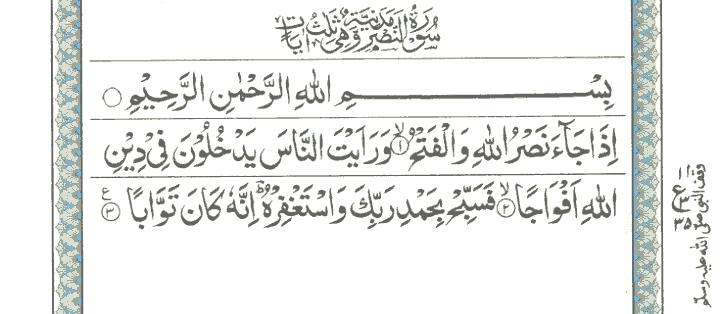 سُوْرَةُ النَّصْرِ مَدَنِيَّةٌ وَّهِيَ ثَلٰثُ اٰيَاتٍ
بِسْمِ اللهِ الرَّحْمٰنِ الرَّحِيْمِ ○
اِذَا جَآءَ نَصْرُ اللهِ وَالْفَتْحُ ۙ﴿۱﴾ وَرَاَيْتَ النَّاسَ يَدْخُلُوْنَ فِيْ دِيْنِ
اللهِ اَفْوَاجًا ۙ﴿۲﴾ فَسَبِّحْ بِحَمْدِ رَبِّكَ وَاسْتَغْفِرْهُ ؕ اِنَّهٗ كَانَ تَوَّابًا ﴿۳﴾ ع
ع
۳
۳۵
وقف النبي صلى الله عليه وسلم